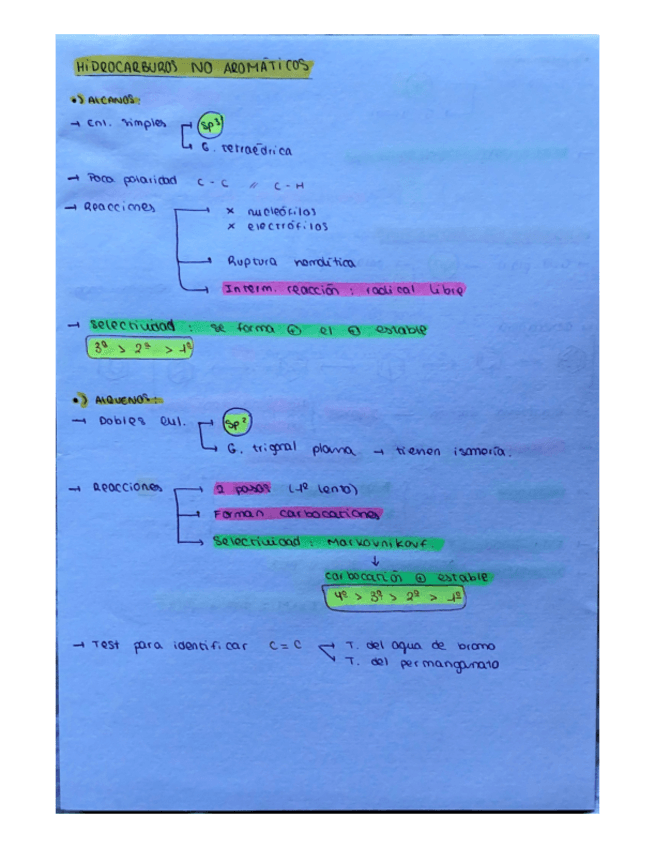 HIDROCARBUROS NO AROMÁTICOS
•) ALCANOS:
→ Enl. simples → sp³
→ G. tetraédrica
→ Poca polaridad C-C // C-H
→ Reacciones → x nucleófilos
x electrófilos
→ Ruptura homolítica
→ Interm. reacción: radical libre
→ Selectividad: se forma ⊕ el ⊕ estable
3º > 2º > 1º
•) ALQUENOS:
→ Dobles enl. → sp²
→ G. trigonal plana → tienen isomería.
→ Reacciones → 2 pasos (1º lento)
→ Forman carbocationes
→ Selectividad: Markovnikovf.
↓
carbocatión ⊕ estable
4º > 3º > 2º > 1º
→ Test para identificar C=C → T. del agua de bromo
→ T. del permanganato